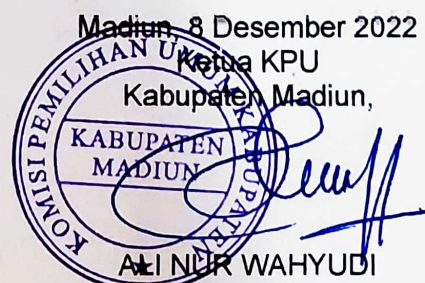 Madiun, 8 Desember 2022
Ketua KPU
Kabupaten Madiun,
KOMISI PEMILIHAN UMUM KABUPATEN
KABUPATEN
MADIUN
ALI NUR WAHYUDI